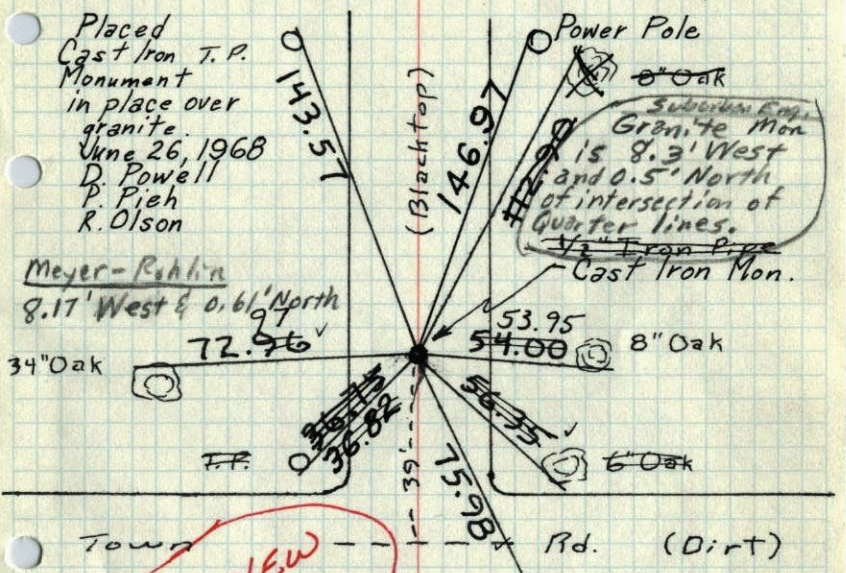 Placed
Cast Iron T.P.
Monument
in place over
granite.
June 26, 1968
D. Powell
P. Pieh
R. Olson
Meyer-Rohlin
8.17' West & 0.61' North
143.57
(Blacktop)
146.97
Power Pole
8" Oak
112.90
Suburban Eng.
Granite Mon
is 8.3' West
and 0.5' North
of intersection of
Quarter lines.
1/2" Iron Pipe
Cast Iron Mon.
97
72.96 ✓
34" Oak
53.95
54.00
8" Oak
36.75
36.82
T.P.
56.35 ✓
6" Oak
39'
75.98
Town Rd. (Dirt)